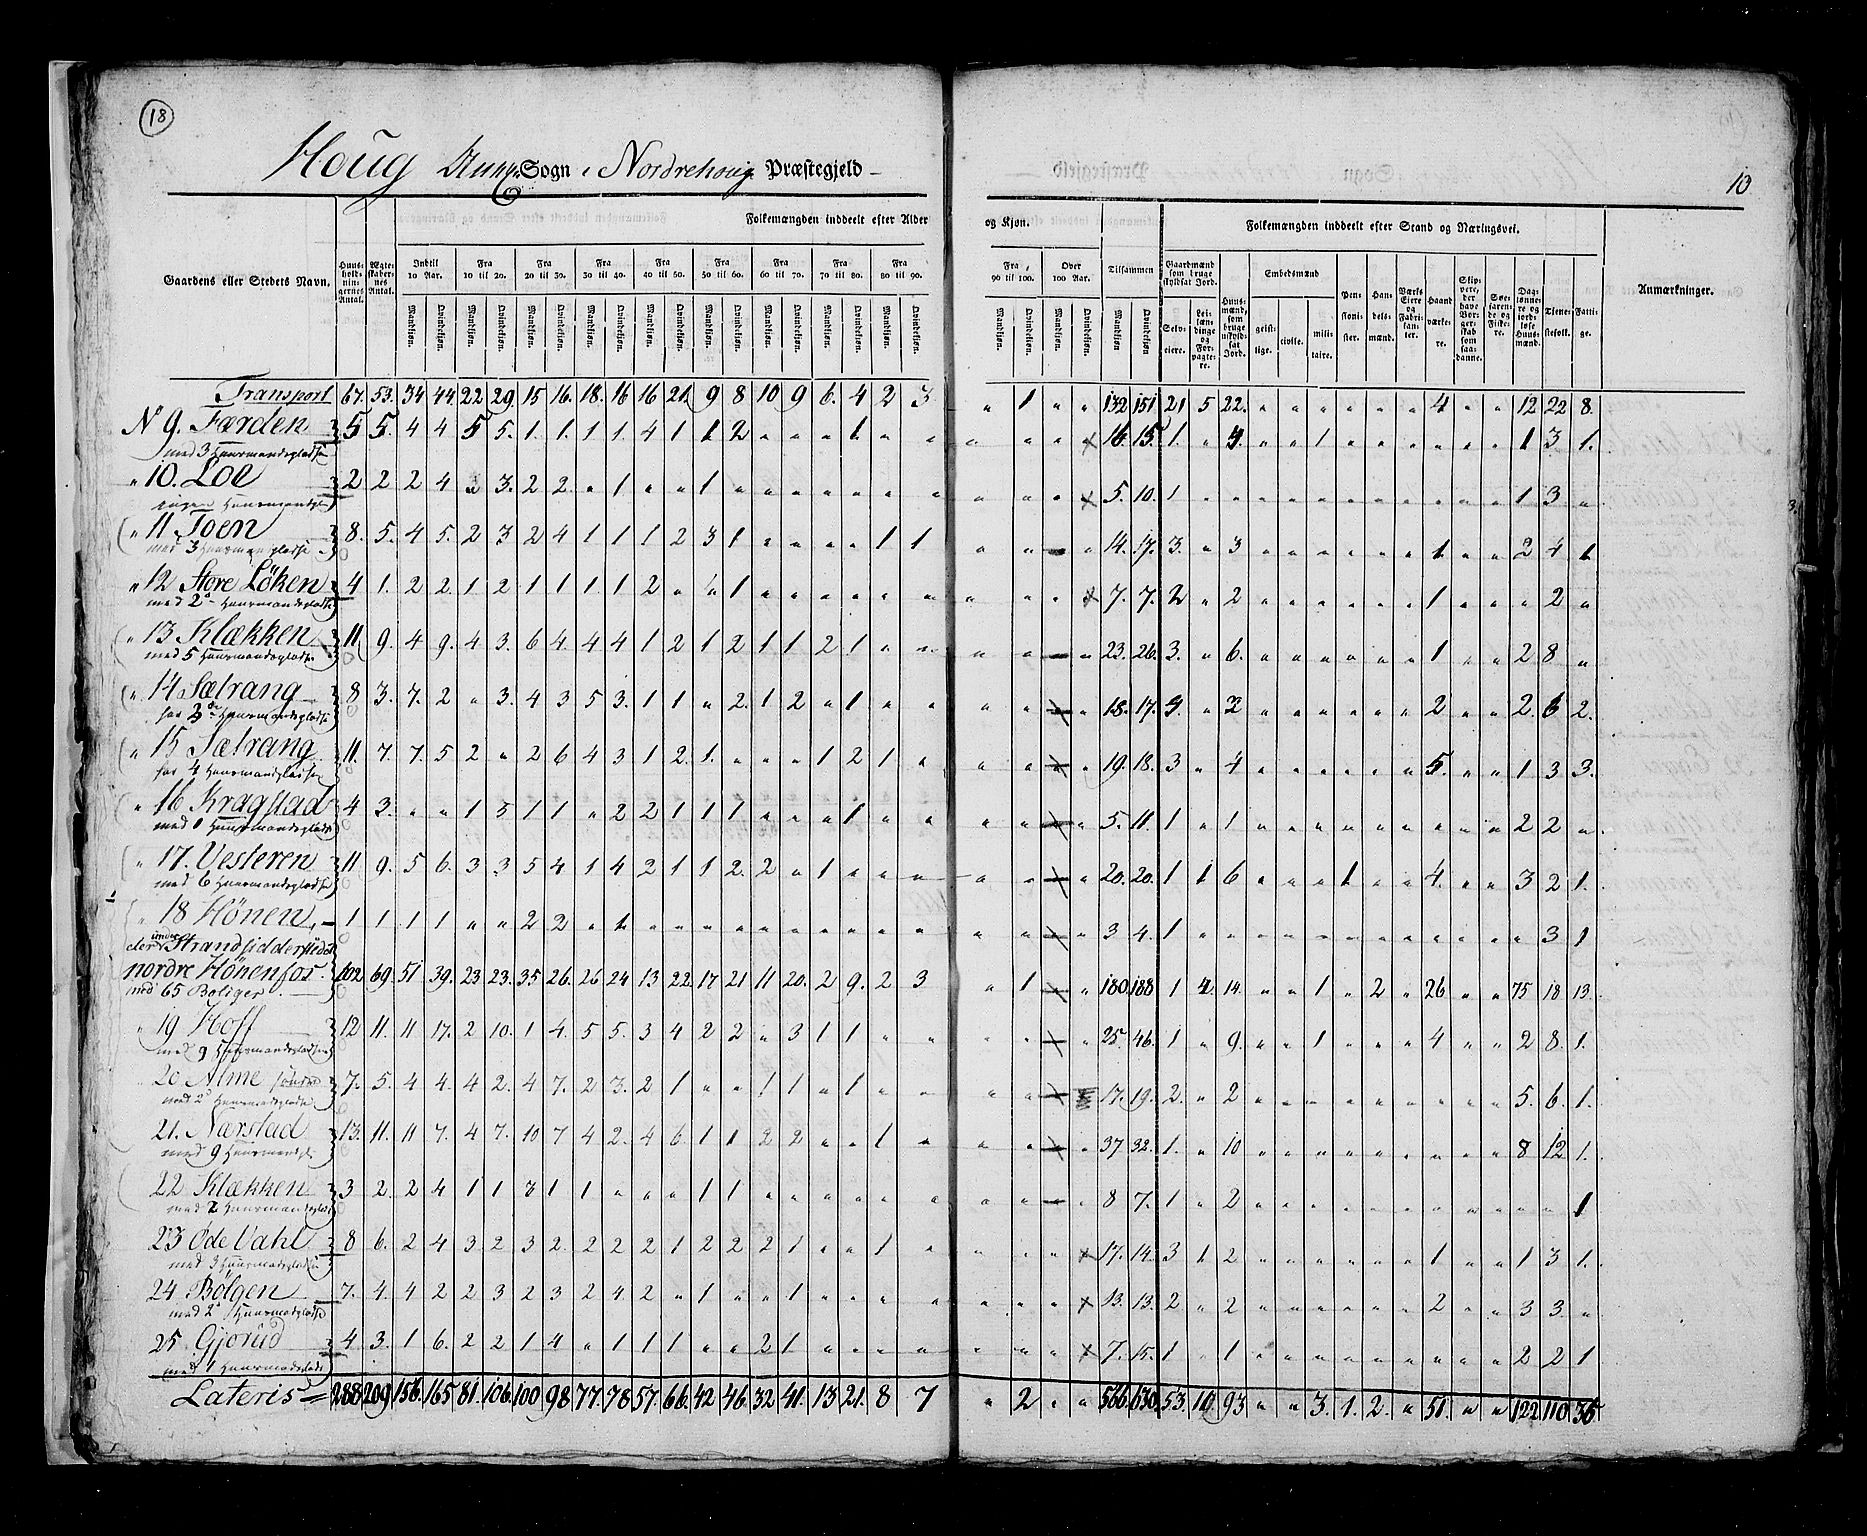 18
Houg Sogn i Nordrehoug Præstegjeld
10
Gaardens eller Stedets Navn.
Huusholdningernes Antal.
Ægteskabernes Antal.
Folkemængden inddeelt efter Alder og Kjøn.
Indtil 10 Aar. Fra 10 til 20. Fra 20 til 30. Fra 30 til 40. Fra 40 til 50. Fra 50 til 60. Fra 60 til 70. Fra 70 til 80. Fra 80 til 90. Fra 90 til 100. Over 100 Aar. Tilsammen
Mandkjøn. Qvindekjøn.
Folkemængden inddeelt efter Stand og Næringsvei.
Gaardmænd som bruge skyldsat Jord.
Selveiere. Leilændinge og Forpagtere.
Huusmænd, som bruge uskyldsat Jord.
Embedsmænd
geistlige. civile. militaire.
Pensionister. Handelsmænd. Værks Eiere og Fabrikanter. Haandværkere. Skippere, der have Borgerskab som saadanne. Søefarende og Fiskere. Daglønnere og jordløse Huusmænd. Tjenestefolk. Fattige.
Anmærkninger.
Transport 67. 53. 34 44. 22 29. 15 16. 18. 16 16 21. 9 8 10 9 6. 4 2 3 " 1 " " 132 151 21 5 22. " " " " " " 4 " " 12 22 8.
N 9. Færden 5 5. 4 4 5 5. 1. 1. 1 1. 4 1 1 2 " " " 1 " " " " " " 16. 15. 1. " 4. " " 1 " " " " " " 1 3 1.
med 3 Huusmandspladse
" 10. Loe 2 2 2 4 " 3. 2 2. " 1 " " 1 " " " " " " " " " " " 5. 10. 1 " " " " " " " " " " " 1 3 "
ingen Huusmandspl
" 11 Toen 8. 5. 4 5. 2 3 2 4 1 1 1 2 3 1 " " " " 1 1 " " " " 14. 17. 3. " 3 " " " " " " 1 " " 2 4 1
med 3 Huusmanspladse
" 12 Store Löken 4 1. 2 2. 1 2 1 1 1 1 2 " 1 1 " " " " " " " " " " 7. 7. 2 " 2 " " " " " " 1 " " " 2 "
med 2 Huusmandspladse
" 13 Klækken 11 9. 4 9. 4 3. 6 4. 4 4 1 2 1 2 1 1 2 1 " " " " " " 23. 26. 3. " 6. " " " " " " 1 " " 2 8 "
med 5 Huusmandspladse
" 14 Sætrang 8 3. 7. 2 " 3. 4 3 5 3. 1 1 " 2. 1 2 " 1 " " " " " " 18. 17. 4. " 2 " " " " " " 2 " " 2. 6 2.
har 3 Huusmandspladse
" 15 Sætrang 11. 7. 7. 5 2 " 2 6 4 3 1 2. 1. " " " 1 2 1 " " " " " 19. 18. 3 " 4 " " " " " " 5. " " 1 3 3.
har 4 Huusmandspladse
" 16 Kragstad 4 3. " " 1 5 1 1 " 2 2 1 1 1 " " " 1 " " " " " " 5. 11. 1 " 1 " " " " " " " " " 2 2 "
med 1 Huusmandsplads
" 17. Vesteren 11 9. 5 6. 3 3. 5 4 1 4 2 1 1 2. 2 " 1 " " " " " " " 20. 20. 1 1 6 " " " 1 " " 4. " " 3 2 1.
med 6 Huusmandspladse
" 18 Hönen, 1 1 1 1 " " 2 2. " 1 " " " " " " " " " " " " " " 3 4. 1 " " " " " " " " " " " " 3 1
derunder Strandsidderstedet
nordre Hönenfos 102 69. 51 39. 23 23. 35 26. 26 24 13 22. 17 21 11 20. 2 9. 2 3 " 1 " " 180 188 1 4. 14. " " 1 " 2 " 26 " " 75 18 13.
med 65 Boliger
" 19 Hoff 12 11. 11 17. 2 10. 1 4. 5 5. 3 4 2 2 " 3 1 1 " " " " " " 25. 46. 1 " 9. " " 1 " " " 4 " " 2 8. 1.
med 9 Huusmandspladse
20 Alme søndre 7. 5. 4 4. 4 2. 4 7. 2 3. 2 1 " " 1 1 " 1 " " " " " " 17. 19. 2. " 2 " " " " " " " " " 5. 6. 1.
med 2 Huusmandspladse
21. Nærstad 13. 11. 11 7. 4 7. 10 7 4 2. 4 6. 1 1 2 2 " " 1 " " " " " 37. 32. 1. " 10 " " " " " " " " " 8 12 1.
med 9 Huusmandspl
22 Klækken 3 2. 2 4 1 1 3 1 1 " " " 1 1 " " " " " " " " " " 8 7. 1 " 2 " " " " " " " " " " " 1
med 2 Huusmandspladse
23 Øde Vahl 8 6. 2 4 3 2 3 2. 2 2 2 1 2 2 2 1 " " 1 " " " " " 17. 14. 3 1 2 " " " " " " 1 " " 1 3 1.
med 3 Huusmandspladse
24 Bölgen 7. 4. 4 2 2 3 2 3. 2 4 2 " 1 " " 1 " " " " " " " " 13. 13. 2 " 2 " " " " " " 2 " " 3 3. "
med 2 Huusmandspladse
25. Gjorud 4 3. 1 6. 2 2 1 4 " 1 1 1 " " 2 1 " " " " " " " " 7. 15. 1 " 1 " " " " " " " " " 2 2 1
med 1 Huusmandsplads
Lateris 288 209. 156. 165 81. 106. 100 98 77. 78 57. 66. 42 46. 32 41. 13 21. 8 7 " 2 " " 566. 630. 53. 10. 93 " " 3. 1. 2. " 51. " " 122 110 36